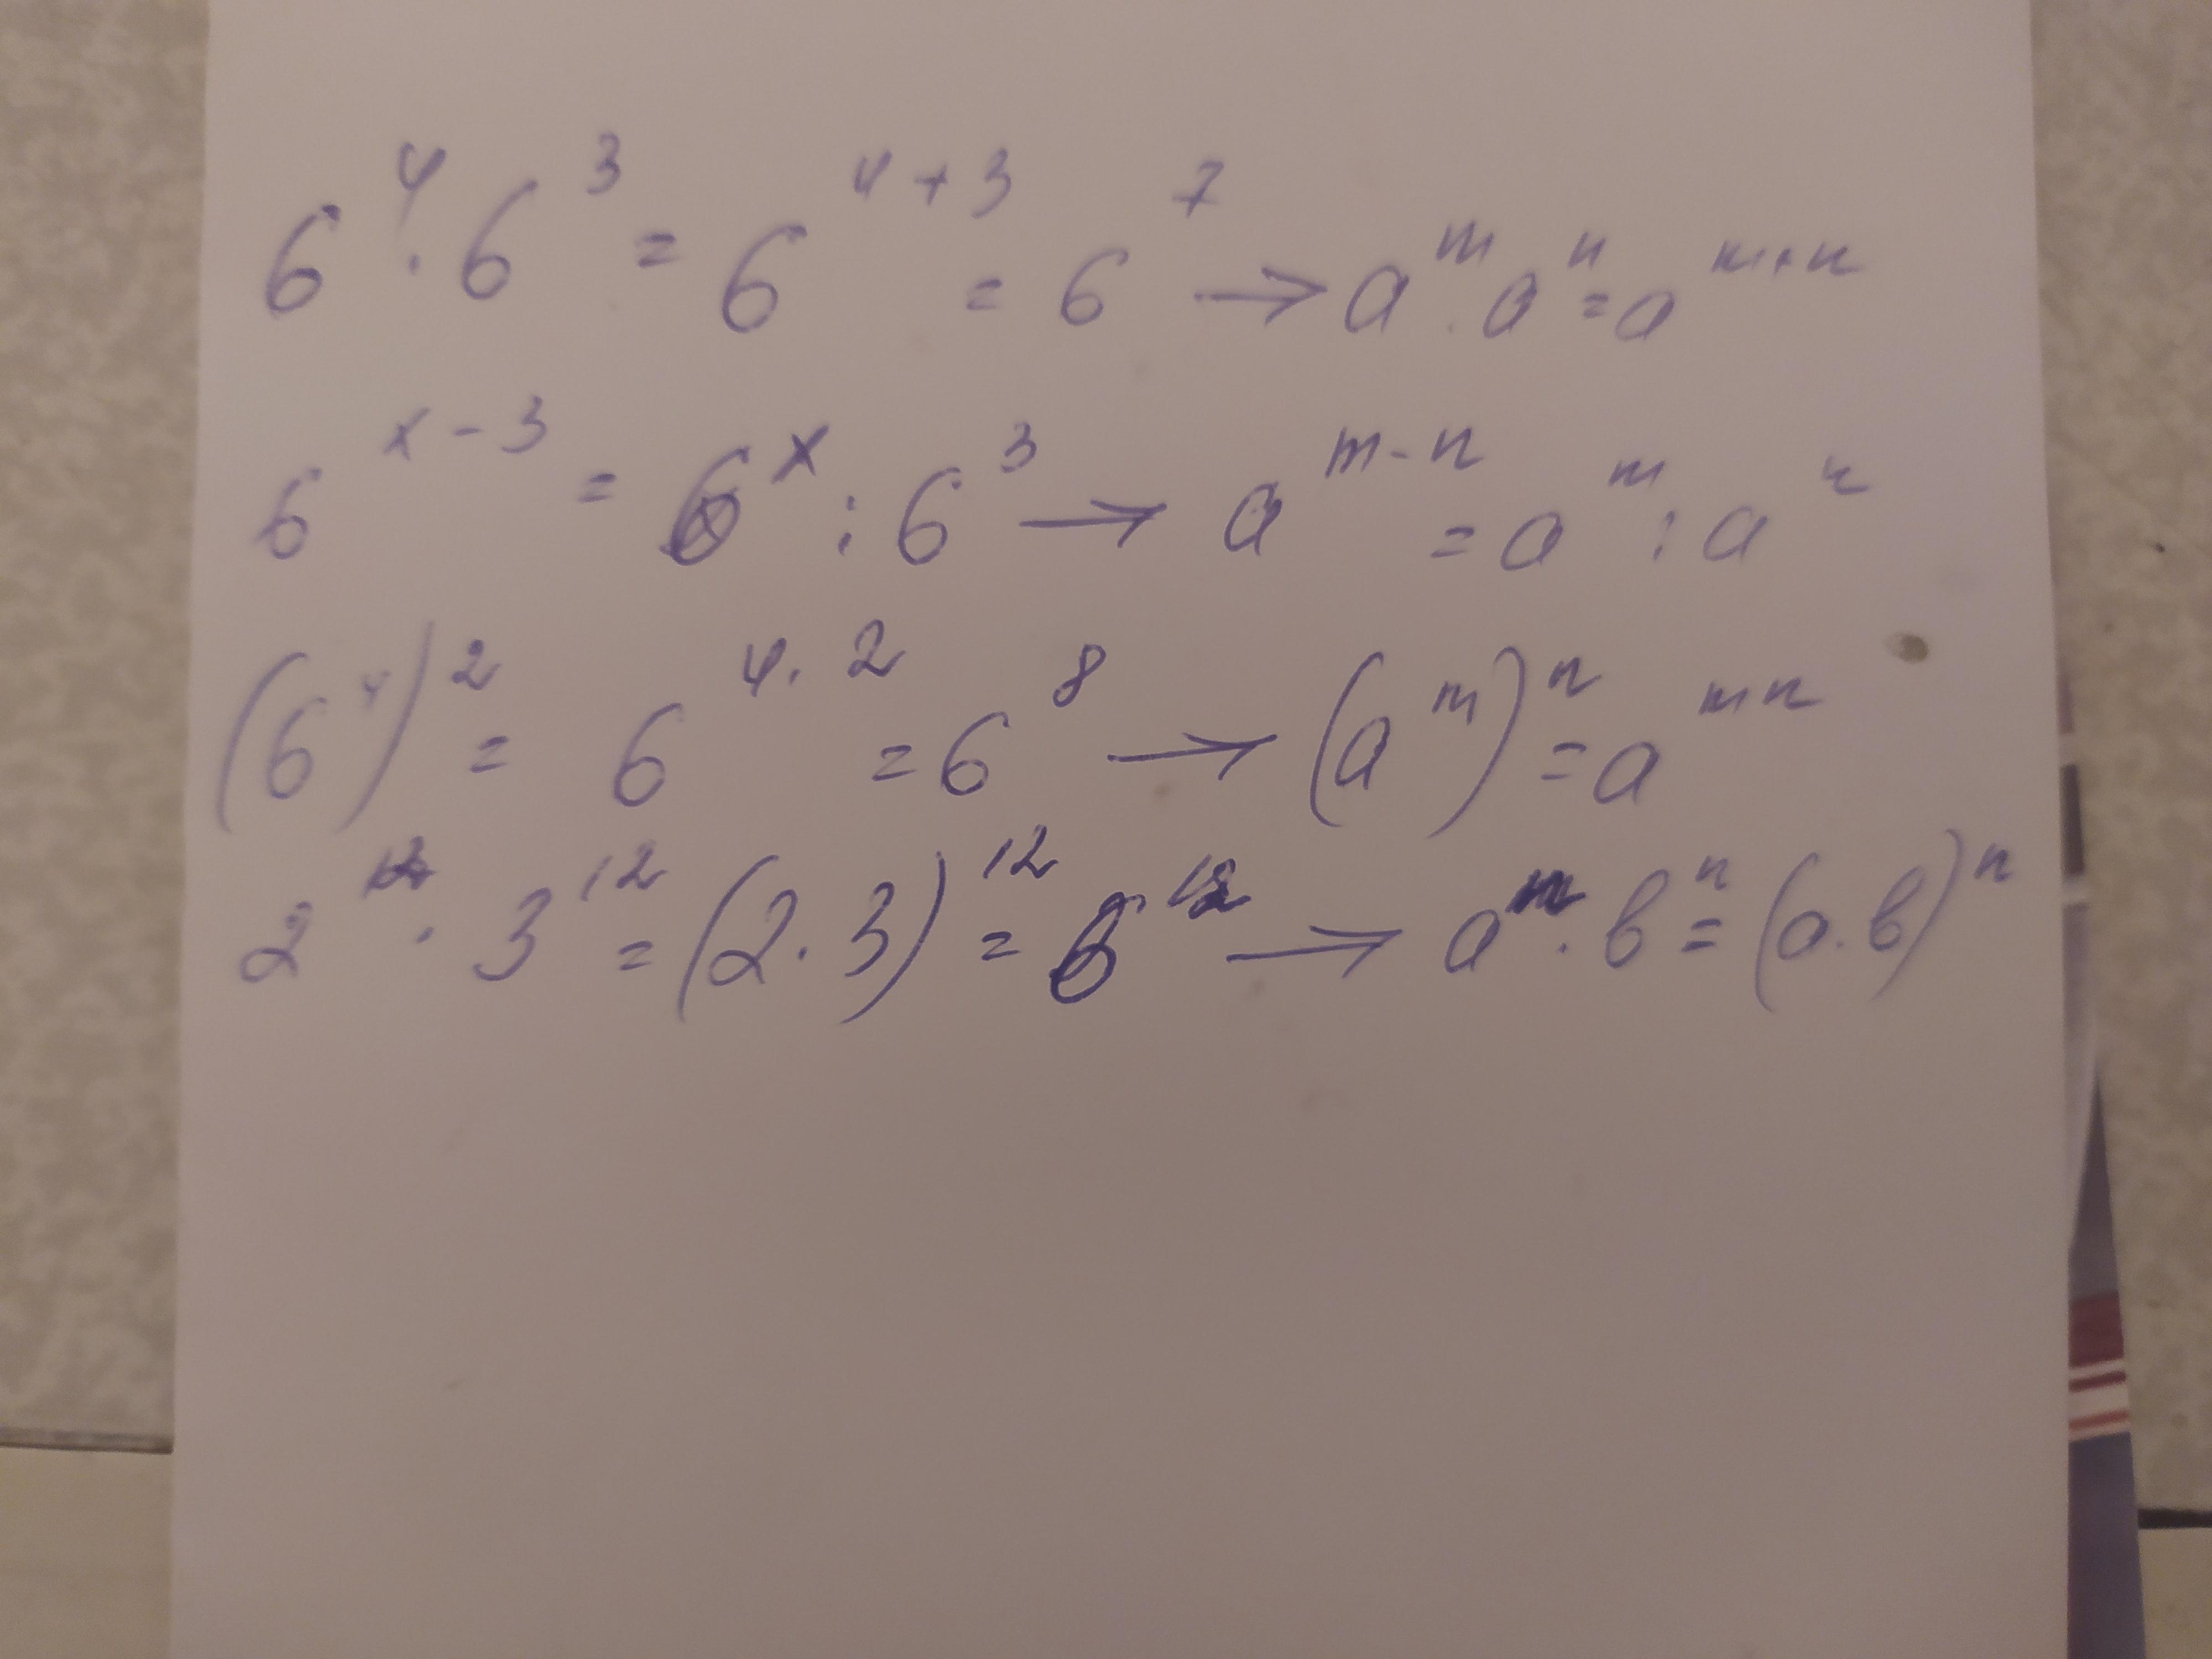 6⁴ · 6³ = 6⁴⁺³ = 6⁷ → aᵐ · aⁿ = aᵐ⁺ⁿ
6ˣ⁻³ = 6ˣ : 6³ → aᵐ⁻ⁿ = aᵐ : aⁿ
(6⁴)² = 6⁴·² = 6⁸ → (aᵐ)ⁿ = aᵐⁿ
2¹² · 3¹² = (2·3)¹² = 6¹² → aⁿ · вⁿ = (а·в)ⁿ